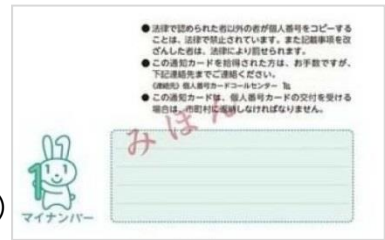 ●法律で認められた者以外の者が個人番号をコピーする
ことは、法律で禁止されています。また記載事項を改
ざんした者は、法律により罰せられます。
●この通知カードを拾得された方は、お手数ですが、
下記連絡先までご連絡ください。
《連絡先》個人番号カードコールセンター ℡
●この通知カードは、個人番号カードの交付を受ける
場合は、市町村に返納しなければなりません。
みほん
1
マイナンバー
)